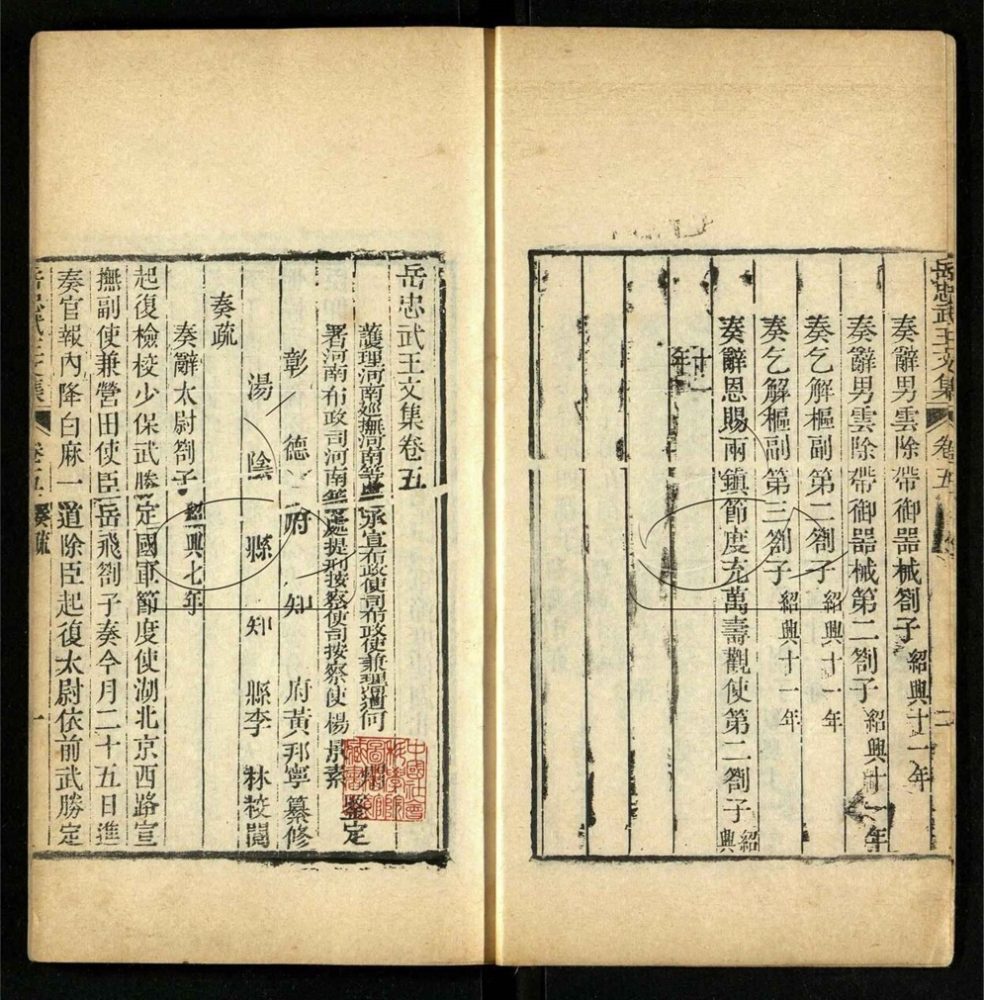 岳忠武王文集 卷五 二
奏辭男雲除帶御器械劄子 紹興十一年
奏辭男雲除帶御器械第二劄子 紹興十一年
奏乞解樞副第二劄子 紹興十一年
奏乞解樞副第三劄子 紹興十一年
奏辭恩賜兩鎮節度充萬壽觀使第二劄子 紹興
十一年
岳忠武王文集卷五
護理河南巡撫河南等處承宣布政使司布政使兼理河
署河南布政司河南等處提刑按察使司按察使楊景素
鑒定
彰德府知府黃邦寧纂修
湯陰縣知縣李林校閱
奏疏
奏辭太尉劄子 紹興七年
起復檢校少保武勝定國軍節度使湖北京西路宣
撫副使兼營田使臣岳飛劄子奏今月二十五日進
奏官報內降白麻一道除臣起復太尉依前武勝定
岳忠武王文集 卷五 奏疏 一
中國社會科學院圖書館藏書